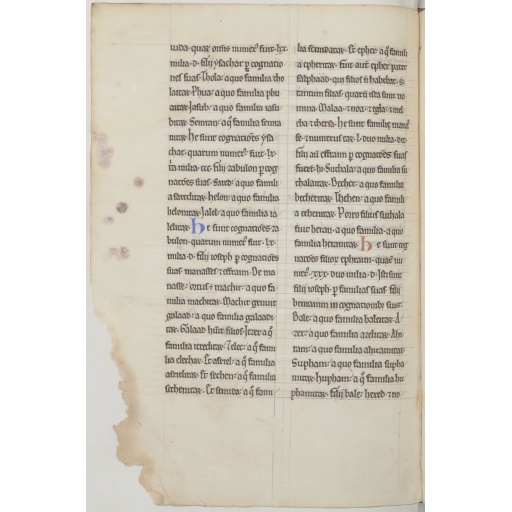 iuda. quaꝝ omis numerꝰ fuit. lxx.
milia. d. filij ysachar ꝑ cognatio
nes suas. Thola. a quo familia tho
laitaꝝ. Phua. a quo familia phu
aitaꝝ. Jasub. a quo familia iasu
bitaꝝ. Semran. a q̊ familia semra
nitaꝝ. he sunt cognatiōes ysa
char. quarum numerꝰ fuit. lx
milia. ccc. filij zabulon ꝑ cog
natōes suas. Sared. a quo famili
a sareditaꝝ. helon. a quo familia
helonitaꝝ. Jalel. a quo familia ia
lelitaꝝ. he sunt cognatiōes za
bulon. quarum numerꝰ fuit. lx.
milia. d. filij ioseph ꝑ cognatiōes
suas. manasses ⁊ effraim. De ma
nasse. ortus ē machir. a quo fa
milia machiritaꝝ. Machir genuit
galaad. a quo familia galaadi
taꝝ. Galaad huit filios. Jezer a q̊
familia iezeritaꝝ. ⁊ elec. a q̊ fami
lia elechaꝝ. Et asriel. a q̊ familia
asrielitaꝝ. Et sechen. a q̊ familia
sechenitaꝝ. Et semida. a q̊ fami
lia semidataꝝ. Et epher. a q̊ famili
a epheritaꝝ. fuit aut̄ epher pater
salphaad. qui filios n̄ habebat. s;
tantum filias. quarū ista sunt no
mina. Maala. ⁊ noa. ⁊ egla. ⁊ mel
cha ⁊ thersa. he sunt familie manas
se. ⁊ numerus eaꝝ. l. duo milia. dcc.
filij aū effraim ꝑ cognatōes suas
fuert hi. Suthala. a quo familia su
thalaitaꝝ. Becher. a quo familia
becheritaꝝ. Thehen. a quo famili
a tehenitaꝝ. Porro filius suthala
fuit heran. a quo familia. a quo
familia heranitaꝝ. he sunt cog
natōes filioꝝ ephraim. quaꝝ nu
merꝰ. xxx. duo milia. d. Isti sunt
filij ioseph. ꝑ familias suas. filij
beniamin in cognationibꝫ suis.
Bale. a quo familia baleitaꝝ. A
zer. a quo familia azelitaꝝ. Ahi
ram. a quo familia ahiramitaꝝ.
Supham. a quo familia supha
mitaꝝ. hupham. a q̊ familia hu
phamitaꝝ. filij bale. hered. ⁊ no